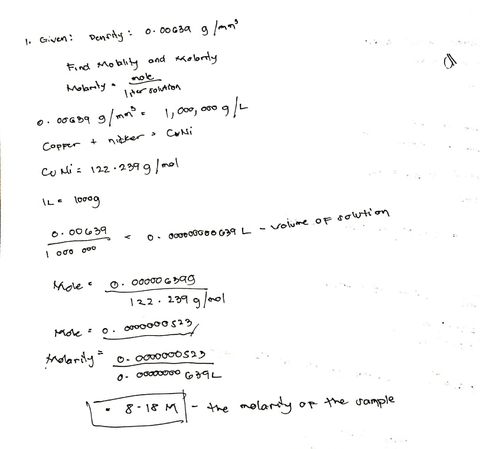 1. Given: Density: 0.00639 g/mm³
Find Molality and Molarity
Molarity = mole / liter solution
0.00639 g/mm³ = 1,000,000 g/L
Copper + nicker = CuNi
CuNi = 122.239 g/mol
1L = 1000g
0.00639 / 1 000 000 = 0.00000000639 L - volume of solution
Mole = 0.00000639g / 122.239 g/mol
Mole = 0.0000000523
Molarity = 0.0000000523 / 0.00000000639L
= 8.18 M - the molarity of the sample